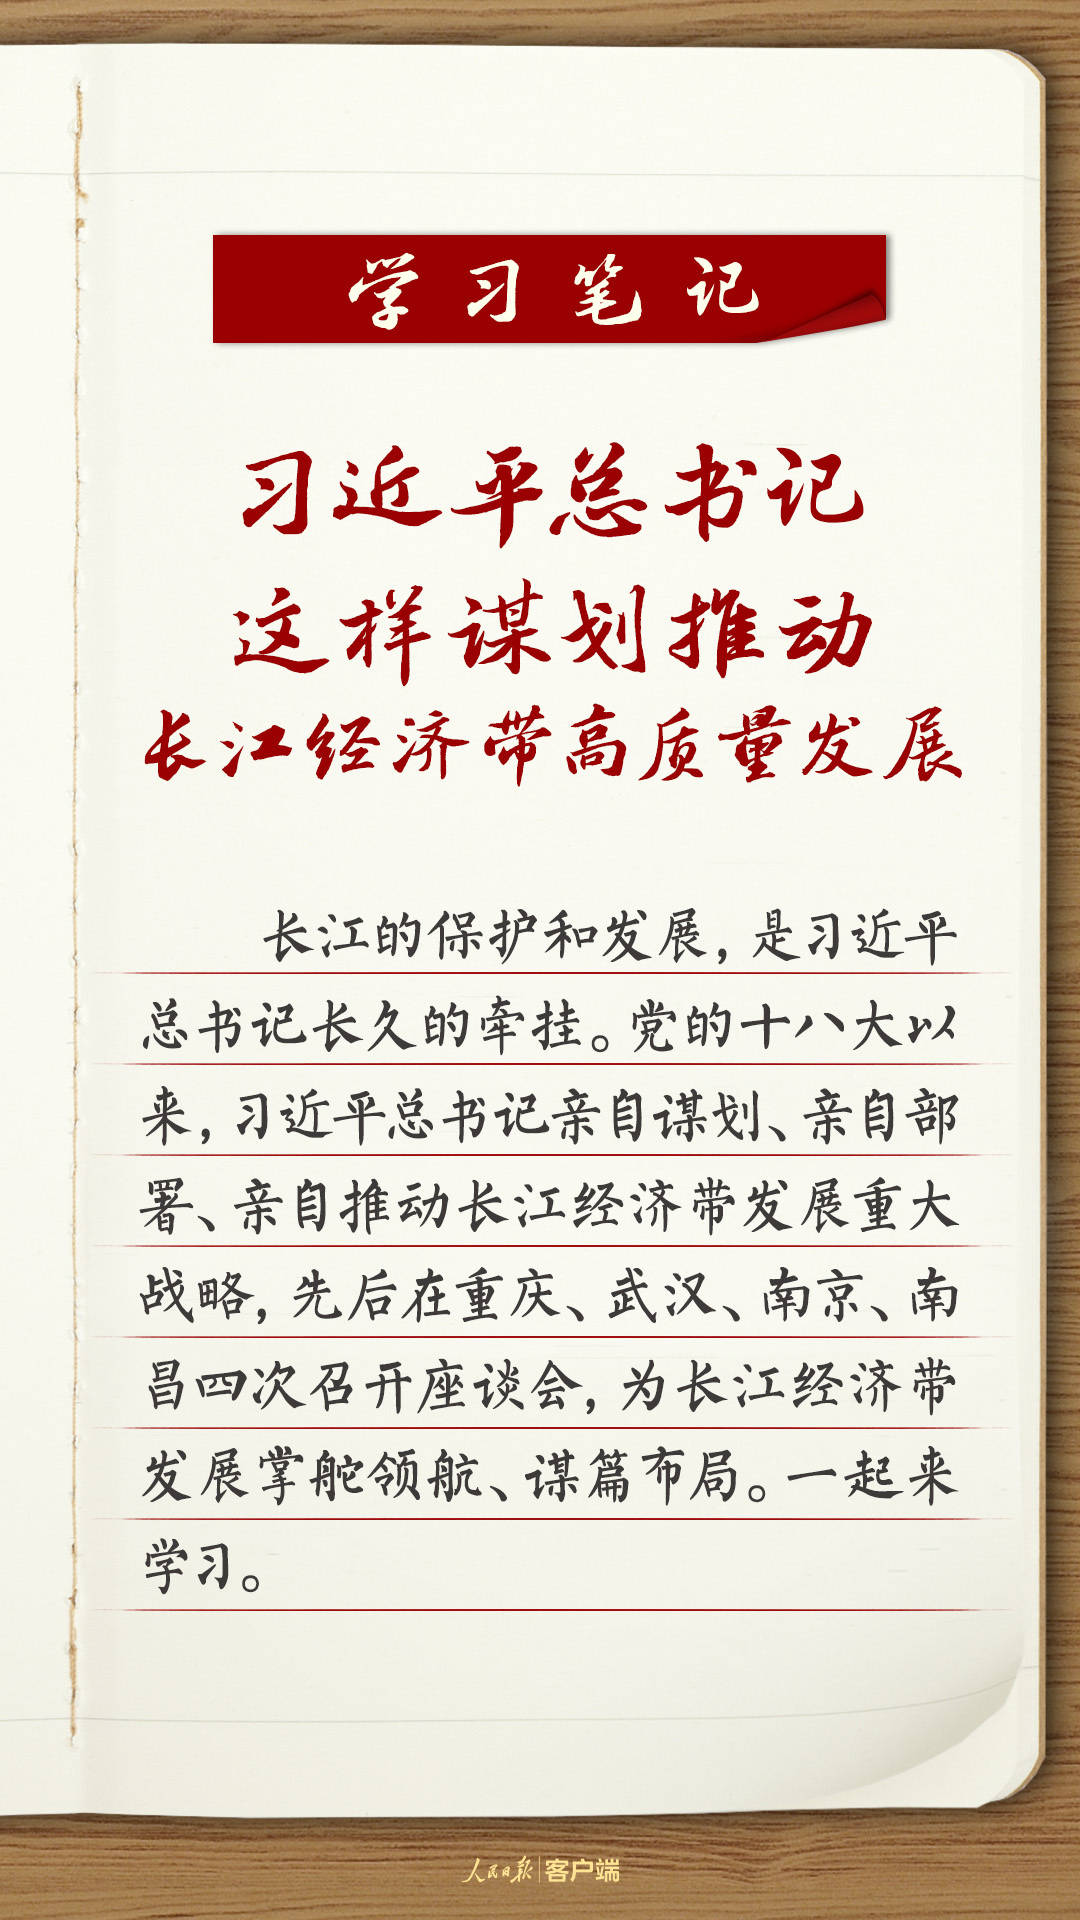 学习笔记
习近平总书记
这样谋划推动
长江经济带高质量发展
长江的保护和发展，是习近平
总书记长久的牵挂。党的十八大以
来，习近平总书记亲自谋划、亲自部
署、亲自推动长江经济带发展重大
战略，先后在重庆、武汉、南京、南
昌四次召开座谈会，为长江经济带
发展掌舵领航、谋篇布局。一起来
学习。
人民日报|客户端